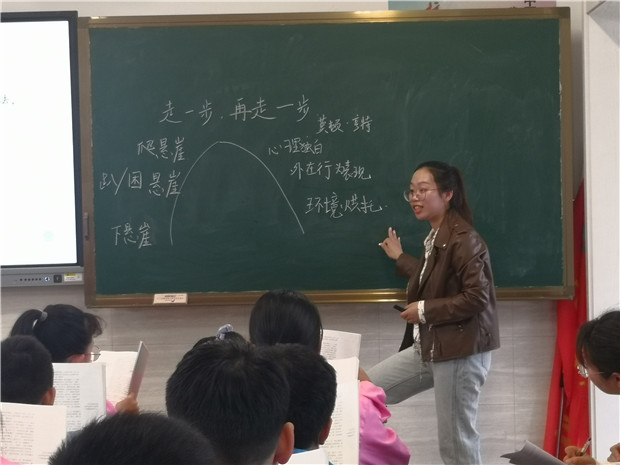 走一步，再走一步
莫顿·亨特
爬悬崖
心理独白
趴/困悬崖
外在行为表现
环境烘托
下悬崖